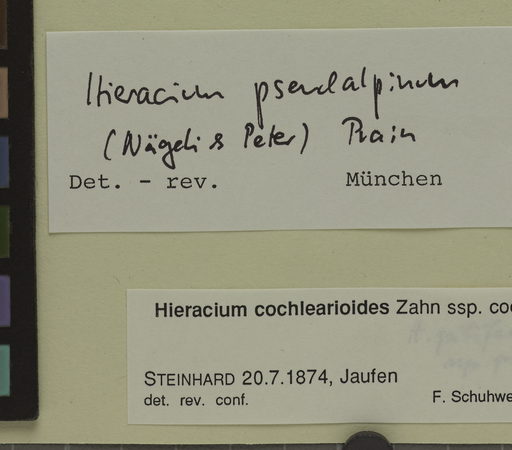 Hieracium pseudalpinum
(Nägeli & Peter) Prain
Det. - rev. München
Hieracium cochlearioides Zahn ssp. coc
STEINHARD 20.7.1874, Jaufen
det. rev. conf. F. Schuhwe